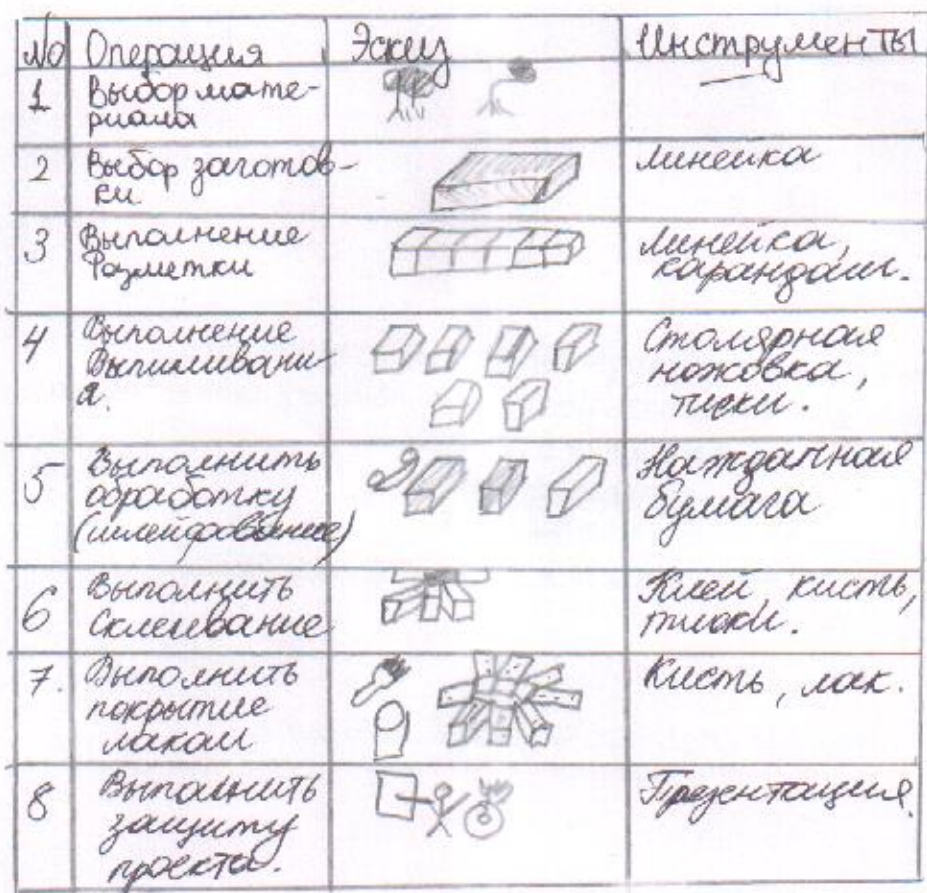 № Операция Эскиз Инструменты
1 Выбор мате-
риала
2 Выбор заготов-
ки.
линейка
3 Выполнение
Разметки
линейка,
карандаш.
4 Выполнение
Выпиливани-
я.
Столярная
ножовка,
тиски.
5 Выполнить
обработку
(шлейфование)
Наждачная
бумага
6 Выполнить
Склеивание
Клей, кисть,
тиски.
7. Выполнить
покрытие
лаком
Кисть, лак.
8 Выполнить
защиту
проекта.
Презентация.